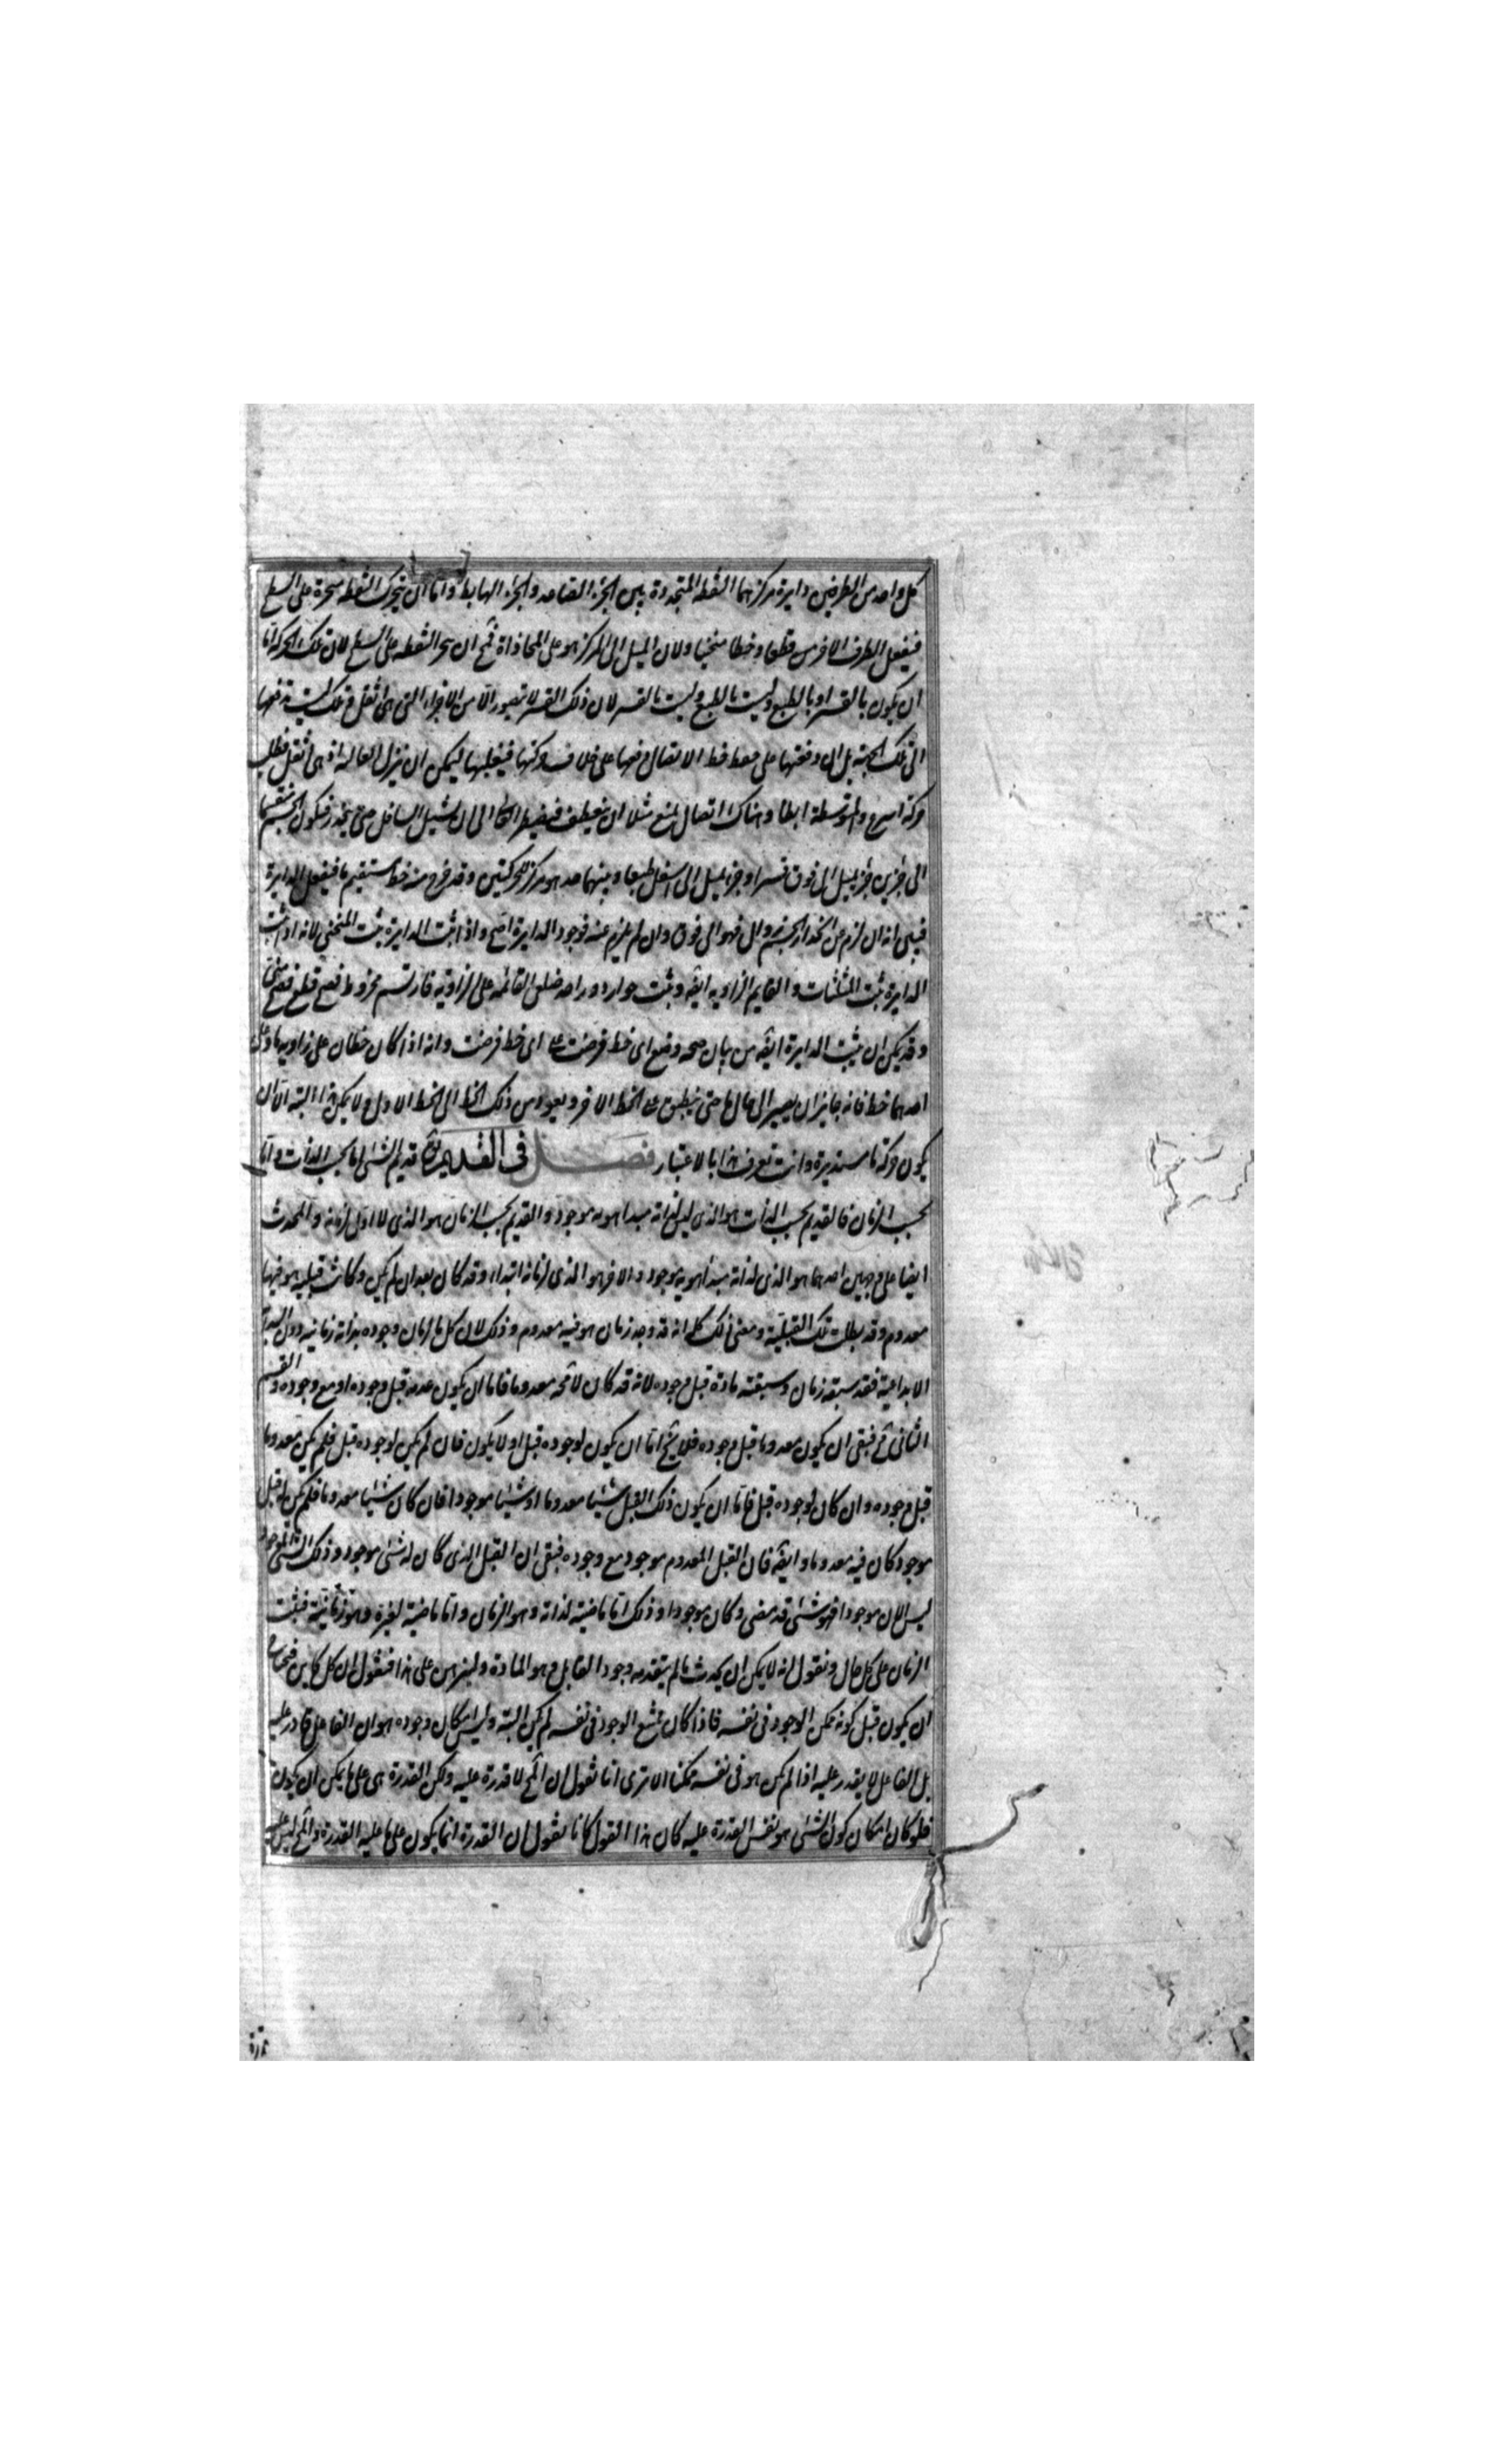 كل واحد من الطرفين دايرة مركزهما النقطه المتجددة بين الجزء الصاعد والجزء الهابط واما ان يتحرك النقطه منجرة على السطح
فيفعل الطرف الاخر من قطعا وخطا منحنيا ولان الميل الى المركز هو على المحاذاة فمح ان ينجر النقطه على السطح لان تلك الحركة اما
ان يكون بالقسر او بالطبع وليست بالطبع وليست بالقسر لان ذلك القسر لا تتصور الا من الاجزاء التى هى اثقل وتلك ليست تدفعها
الى تلك الجهة بل ان دفعتها على حفظ الاتصال دفعها على خلاف حركتها فيقلبها ليمكن ان ينزل العاليه اذ هى اثقل فتطلب
حركة اسرع والمتوسطة ابطا وهناك اتصال يمنع مثلا ان ينعطف فيضطر العالى ان يشيل السافل حتى ينحدر فيكون الجسم منقسما
الى جزئين جزء يميل الى فوق قسرا وجزء يميل الى اسفل طبعا وبينهما حد هو مركز للحركتين وقد خرج منه خط مستقيم ما فيفعل الدايرة
فبين انه ان لزم عن انحدار الجسم زوال فهو الى فوق وان لم يلزم عنه فوجود الدايرة اصح واذا ثبت الدايرة ثبت المنحنى لانه اذا ثبت
الدايرة ثبت المثلثات والقايم الزاويه ايضه وثبت جواز دور احد ضلعى القائمه على الزاوية فارتسم مخروط فصح قطع فصح منحنى
وقد يمكن ان يثبت الدايرة ايضه من بيان صحه وضع اى خط فرضت على اى خط فرضت وانه اذا كان خطان على زاويه ما وعلى
احدهما خط فانه جايز ان يصير الى حال ما حتى ينطبق على الخط الاخر ويعود من ذلك الخط الى الخط الاول ولا يمكن هذا البته الا ان
يكون حركة ما مستديرة وانت تعرف هذا بالاعتبار فصل فى القديم قديم الشئ اما بحسب الذات واما
بحسب الزمان فالقديم بحسب الذات هو الذى ليس لذاته مبدا هو به موجود والقديم بحسب الزمان هو الذى لا اول لزمانه والمحدث
ايضا على وجهين احدهما هو الذى لذاته مبدا هو به موجود والاخر هو الذى لزمانه ابتداء وقد كان بعد ان لم يكن وكانت قبليه هو فيها
معدوم وقد بطلت تلك القبلية ومعنى ذلك كله انه قد وجد زمان هو فيه معدوم وذلك لان كل ما لزمان وجوده بداية زمانيه دون البداية
الابداعية فقد سبقه زمان وسبقته مادة قبل وجوده لانه قد كان لا مح معدوما فاما ان يكون عدمه قبل وجوده او مع وجوده والقسم
الثانى مح فبقى ان يكون معدوما قبل وجوده فلا يخ اما ان يكون لوجوده قبل او لا يكون فان لم يكن لوجوده قبل فلم يكن معدوما
قبل وجوده وان كان لوجوده قبل فاما ان يكون ذلك القبل شيئا معدوما او شيئا موجودا فان كان شيئا معدوما فلم يكن له قبل
موجود كان فيه معدوما وايضه فان القبل المعدوم موجود مع وجوده فبقى ان القبل الذى كان له شئ موجود وذلك الشئ الموجود
ليس الان موجودا فهو شئ قد مضى وكان موجودا وذلك اما ماضيه لذاته وهو الزمان واما ماضيه لغيره وهو زمانيه فيثبت
الزمان على كل حال ونقول انه لا يمكن ان يحدث ما لم يتقدمه وجود القابل وهو المادة ولنبرهن على هذا فنقول ان كل كاين فيحتاج
ان يكون قبل كونه ممكن الوجود فى نفسه فاذا كان ممتنع الوجود فى نفسه لم يكن البته وليس امكان وجوده هو ان الفاعل قادر عليه
بل الفاعل لا يقدر عليه اذا لم يكن هو فى نفسه ممكنا الا ترى انا نقول ان المح لا قدرة عليه ولكن القدرة هى على ما يمكن ان يكون
فلو كان امكان كون الشئ هو نفس القدرة عليه كان هذا القول كانا نقول ان القدرة انما يكون على ما عليه القدرة والمح ليس عليه